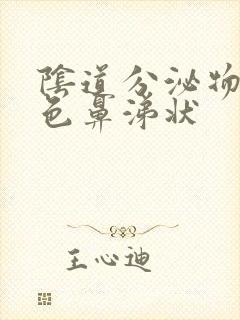 陰道分泌物
色鼻涕状
王心迪